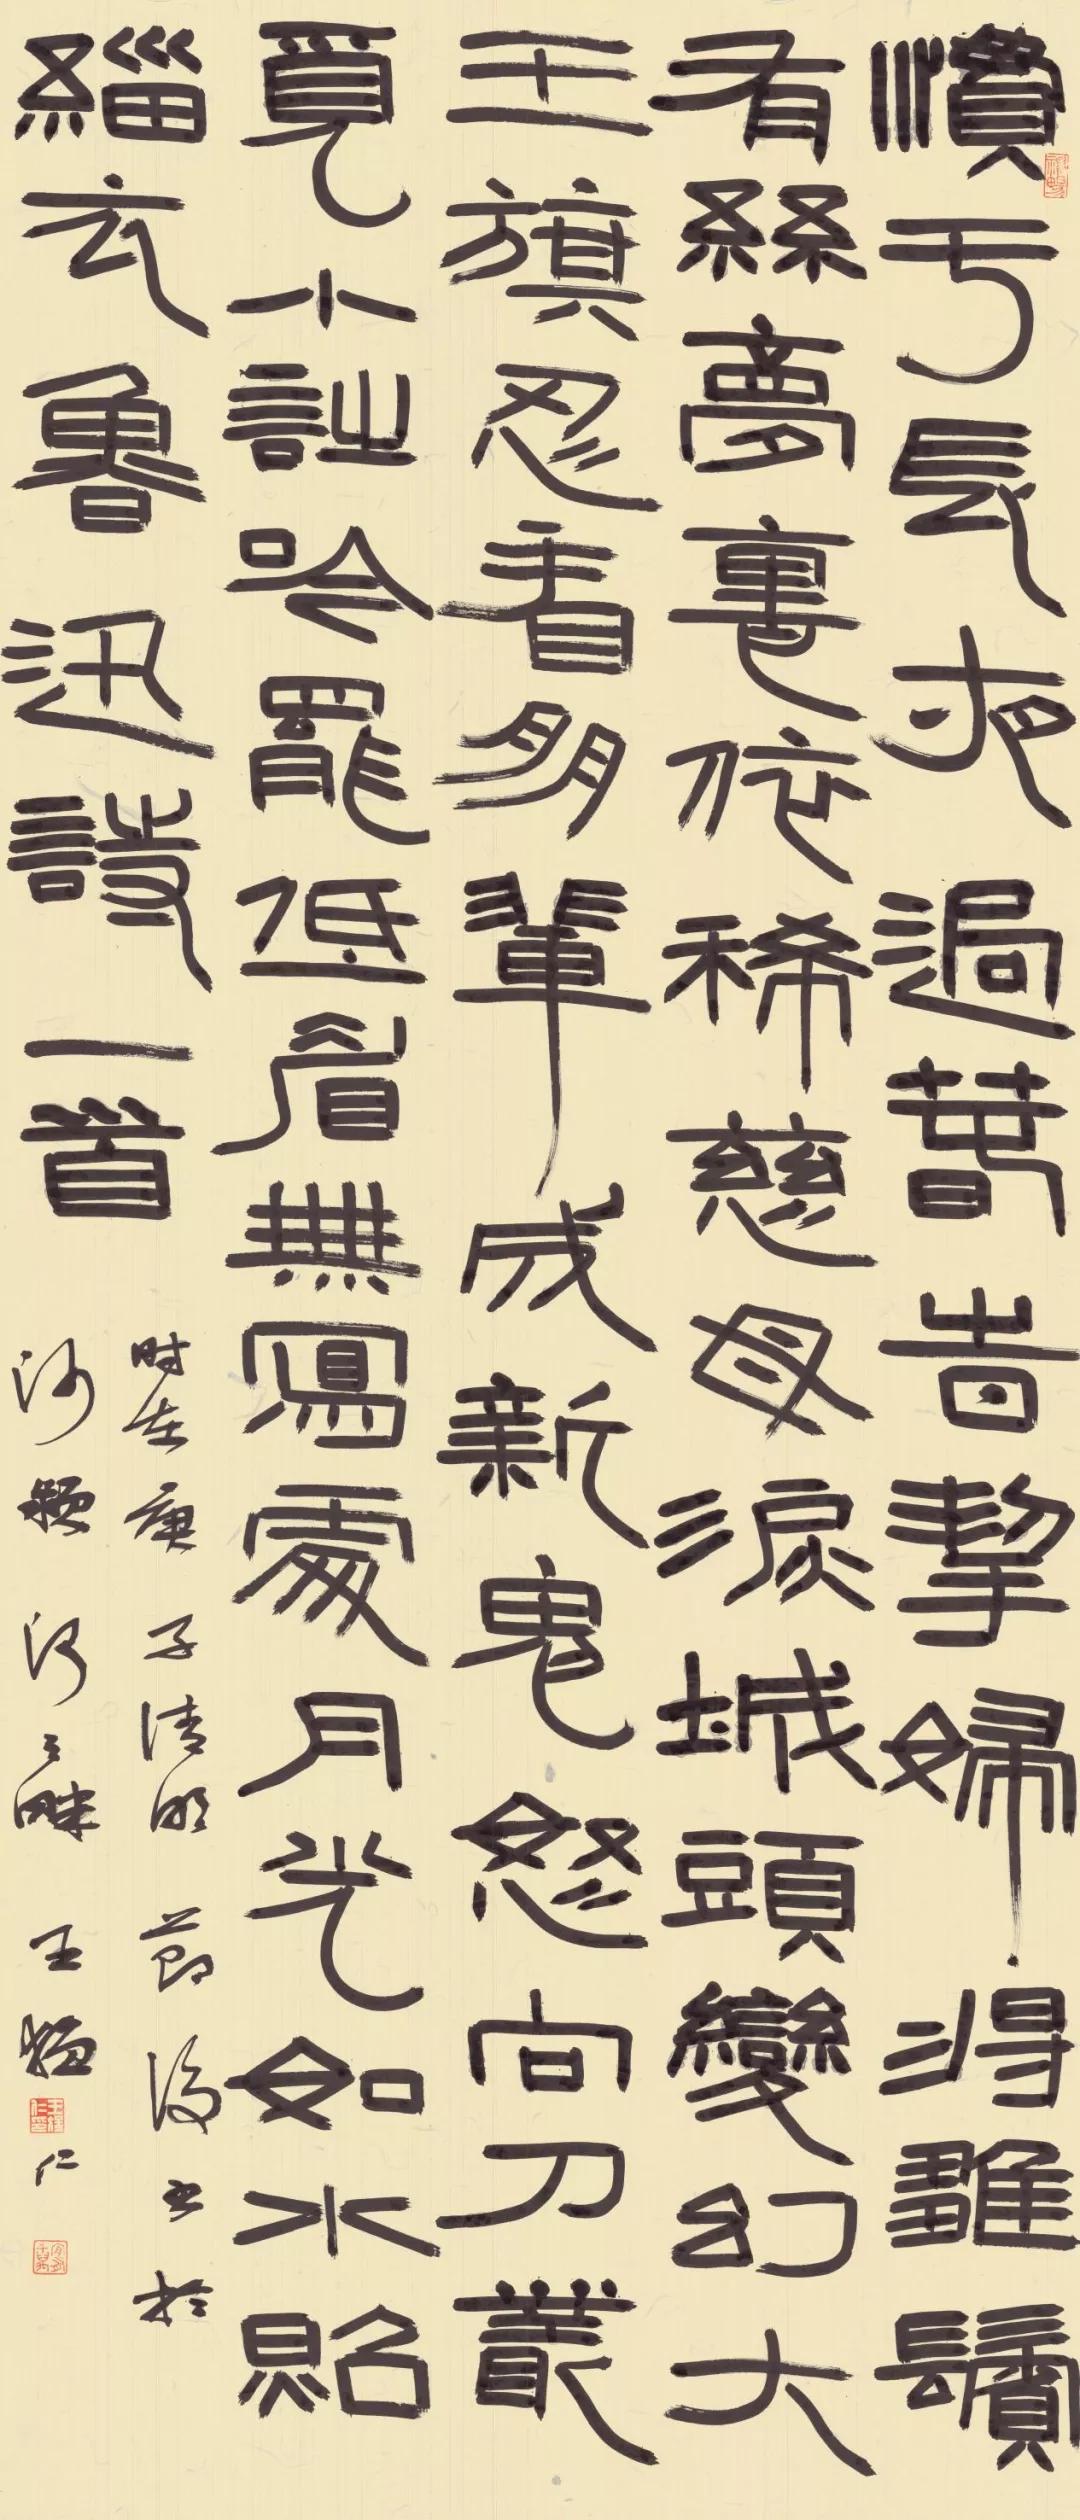 慣于長夜過春時挈婦將雛鬢
有絲夢裏依稀慈母淚城頭變幻大
王旗忍看朋輩成新鬼怒向刀叢
覓小詩吟罷低眉無寫處月光如水照
緇衣魯迅詩一首
时在庚子清明節後書於
沙穎河之畔王猛仁